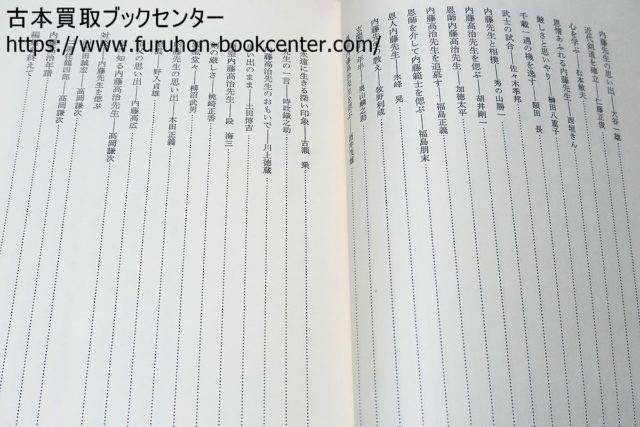 古本買取ブックセンター
https://www.furuhon-bookcenter.com/
内藤先生の思い出――大谷一雄
近代剣道を確立――仁藤正俊
心を学ぶ――松本敏夫
恩情あふれる内藤先生――西垣きん
厳しさと思いやり――楠田八重子
千載一遇の機を逸す――額田 長
武士の試合――佐々木季邦
内藤先生と相撲――秀の山勝一
内藤高治先生を偲ぶ――胡井剛一
恩師内藤高治先生――加徳太平
内藤高治先生を追慕す――福島正義
恩師を介して内藤範士を偲ぶ――福島朋末
恩人内藤先生――永峰 晃
内藤先生の教え――牧野利成
永遠に生きる深い印象――古瀬 乗
先生の一言――時政鐵之助
藤高治先生のおもいで――川上徳蔵
い出のまま――土田博吉
内藤高治先生――段 海三
の厳しさ――桃崎正香
堂々――楊沼武男
――野入貞雄
藤先生の思い出――本田正義
の思い出――内藤高広
知る内藤高治先生――高岡謙次
内藤先生を偲ぶ
高岡謙次
高岡謙次
治年譜
終えて